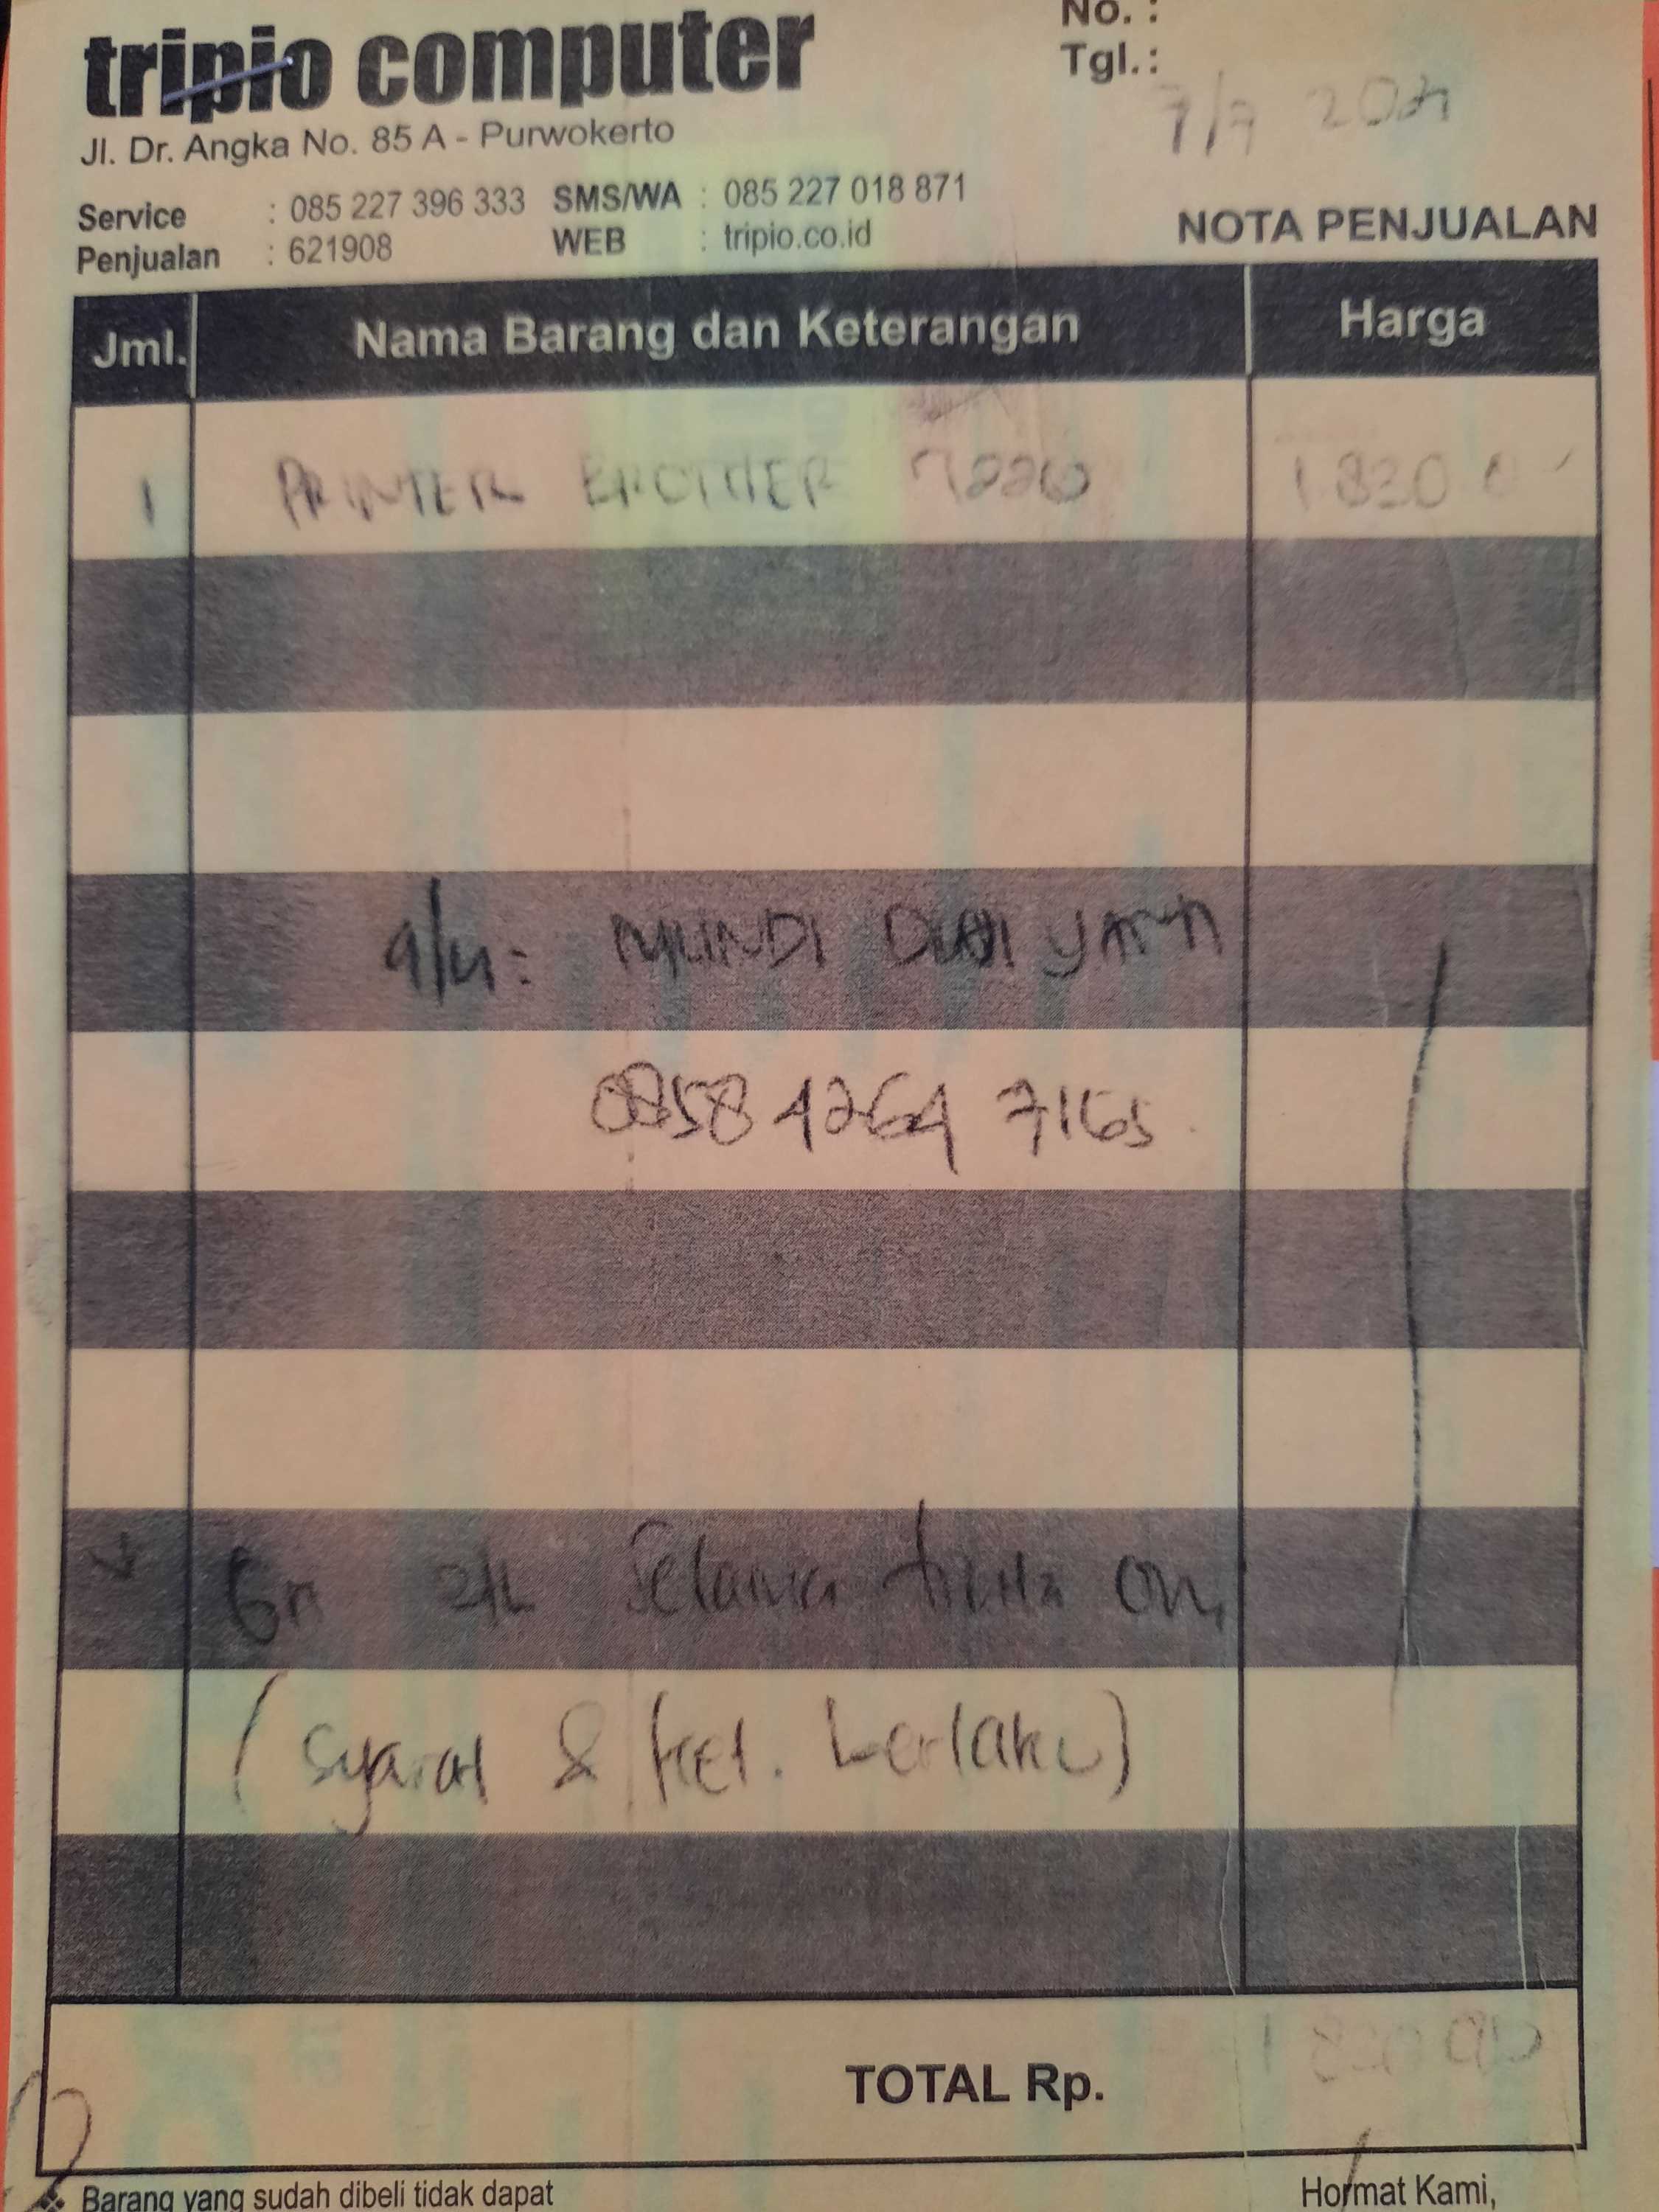 tripio computer
No. :
Tgl. :
Jl. Dr. Angka No. 85 A - Purwokerto
7/7
Service : 085 227 396 333 SMS/WA : 085 227 018 871
Penjualan : 621908 WEB : tripio.co.id
NOTA PENJUALAN
Jml. Nama Barang dan Keterangan Harga
1 PRINTER BROTHER
MUNDI
0858 4264 7165
Selama
(syarat & ket. berlaku)
TOTAL Rp.
Barang yang sudah dibeli tidak dapat
Hormat Kami,